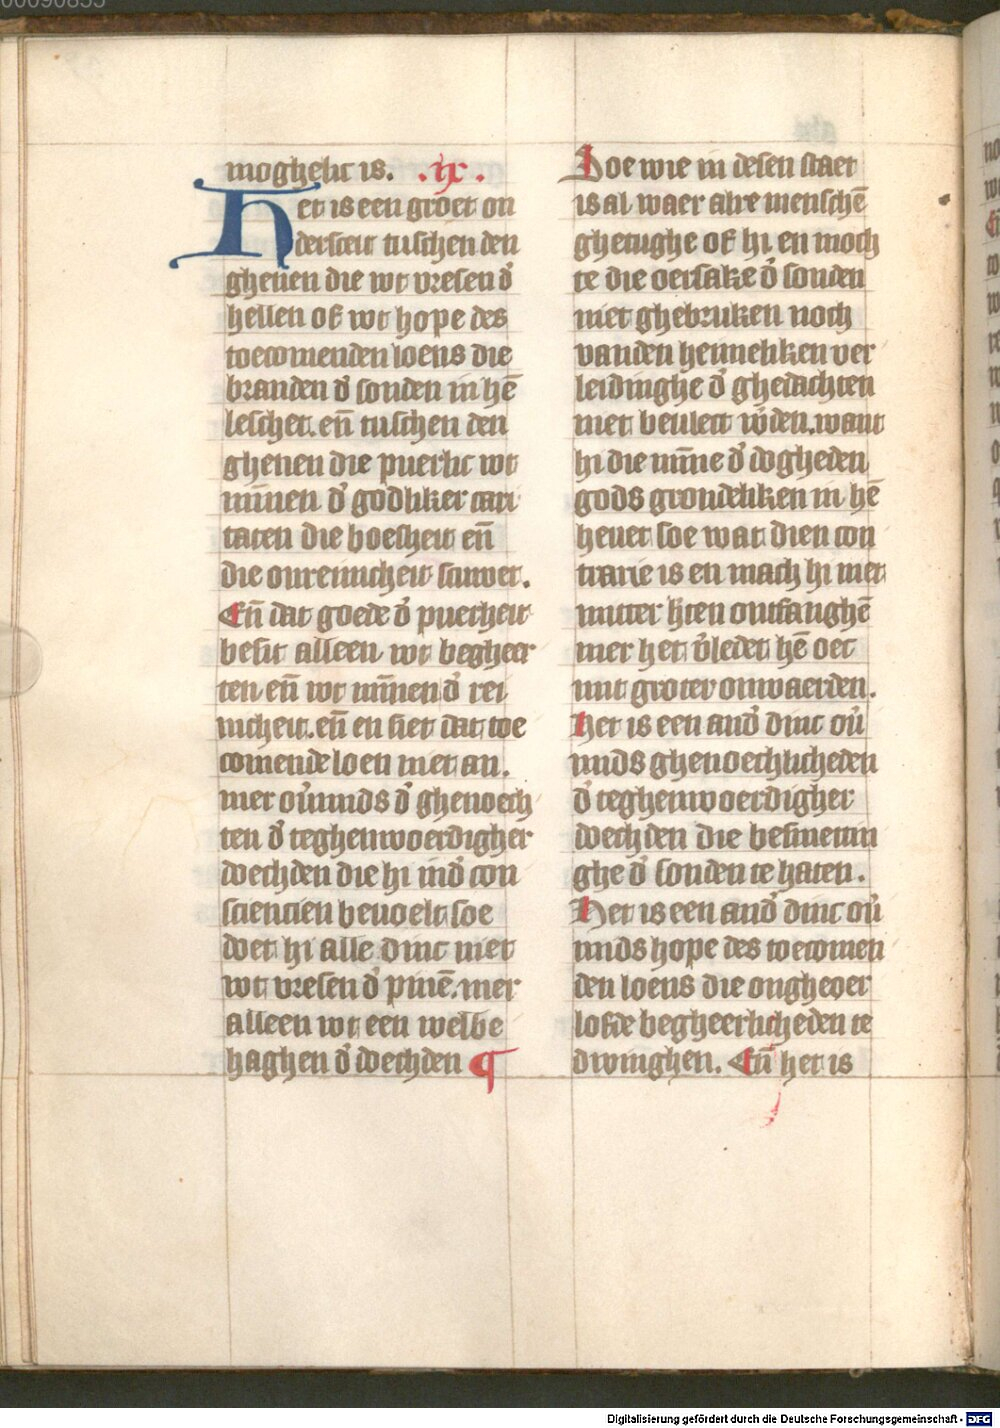 moghelic is. .ix.
Het is een groet on
dersceit tusschen den
ghenen die wt vresen d̕
hellen of wt hope des
toecomenden loens die
branden d̕ sonden in hē
leschet. en̄ tusschen den
ghenen die puerlic wt
min̄en d̕ godliker cari
taten die boesheit en̄
die onreinicheit scuwet.
En̄ dat goede d̕ puerheit
besit alleen wt begheer
ten en̄ wt min̄en d̕ rei
nicheit. en̄ en siet dat toe
comende loen niet an.
mer ou̕mids d̕ ghenoech
ten d̕ teghenwoerdigher
doechden die hi in d̕ con
sciencien beuoelt soe
doet hi alle dinc niet
wt vresen d̕ pinē. mer
alleen wt een welbe
haghen d̕ doechden ¶
Soe wie in desen staet
is al waer alre menschē
ghetughe of hi en moch
te die oersake d̕ sonden
niet ghebruken noch
vanden heimeliken ver
leidinghe d̕ ghedachten
niet beulect w̕den. want
hi die min̄e d̕ dogheden
gods grondeliken in hē
heuet soe wat dien con
trarie is en mach hi niet
mitter h̕ten ontfanghē
mer het v̕leidet hē oec
mit groter onwaerden.
Het is een and̕ dinc ou̕
mids ghenoechlicheden
d̕ teghenwoerdigher
doechden die besmettin
ghe d̕ sonden te haten.
Het is een and̕ dinc ou̕
mids hope des toecomen
den loens die ongheoer
lofde begheerlicheden te
dwinghen. En̄ het is
Digitalisierung gefördert durch die Deutsche Forschungsgemeinschaft - DFG